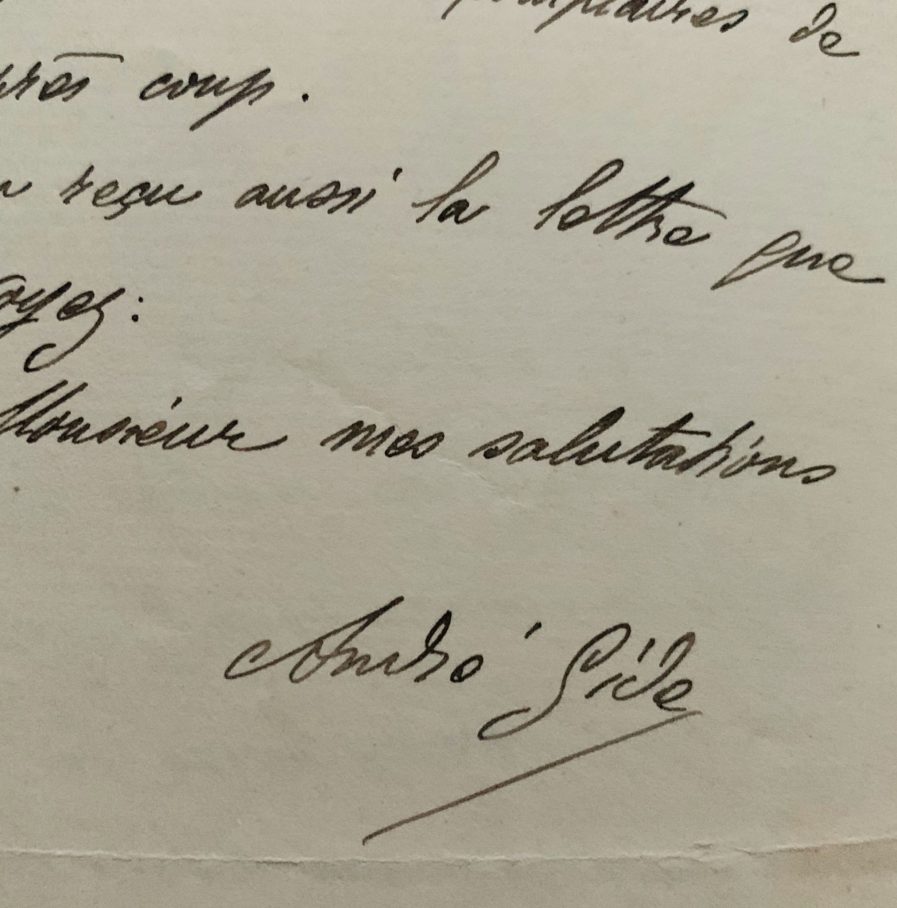 de
coup.
reçu aussi la lettre que
oyez:
Monsieur mes salutations
André Gide